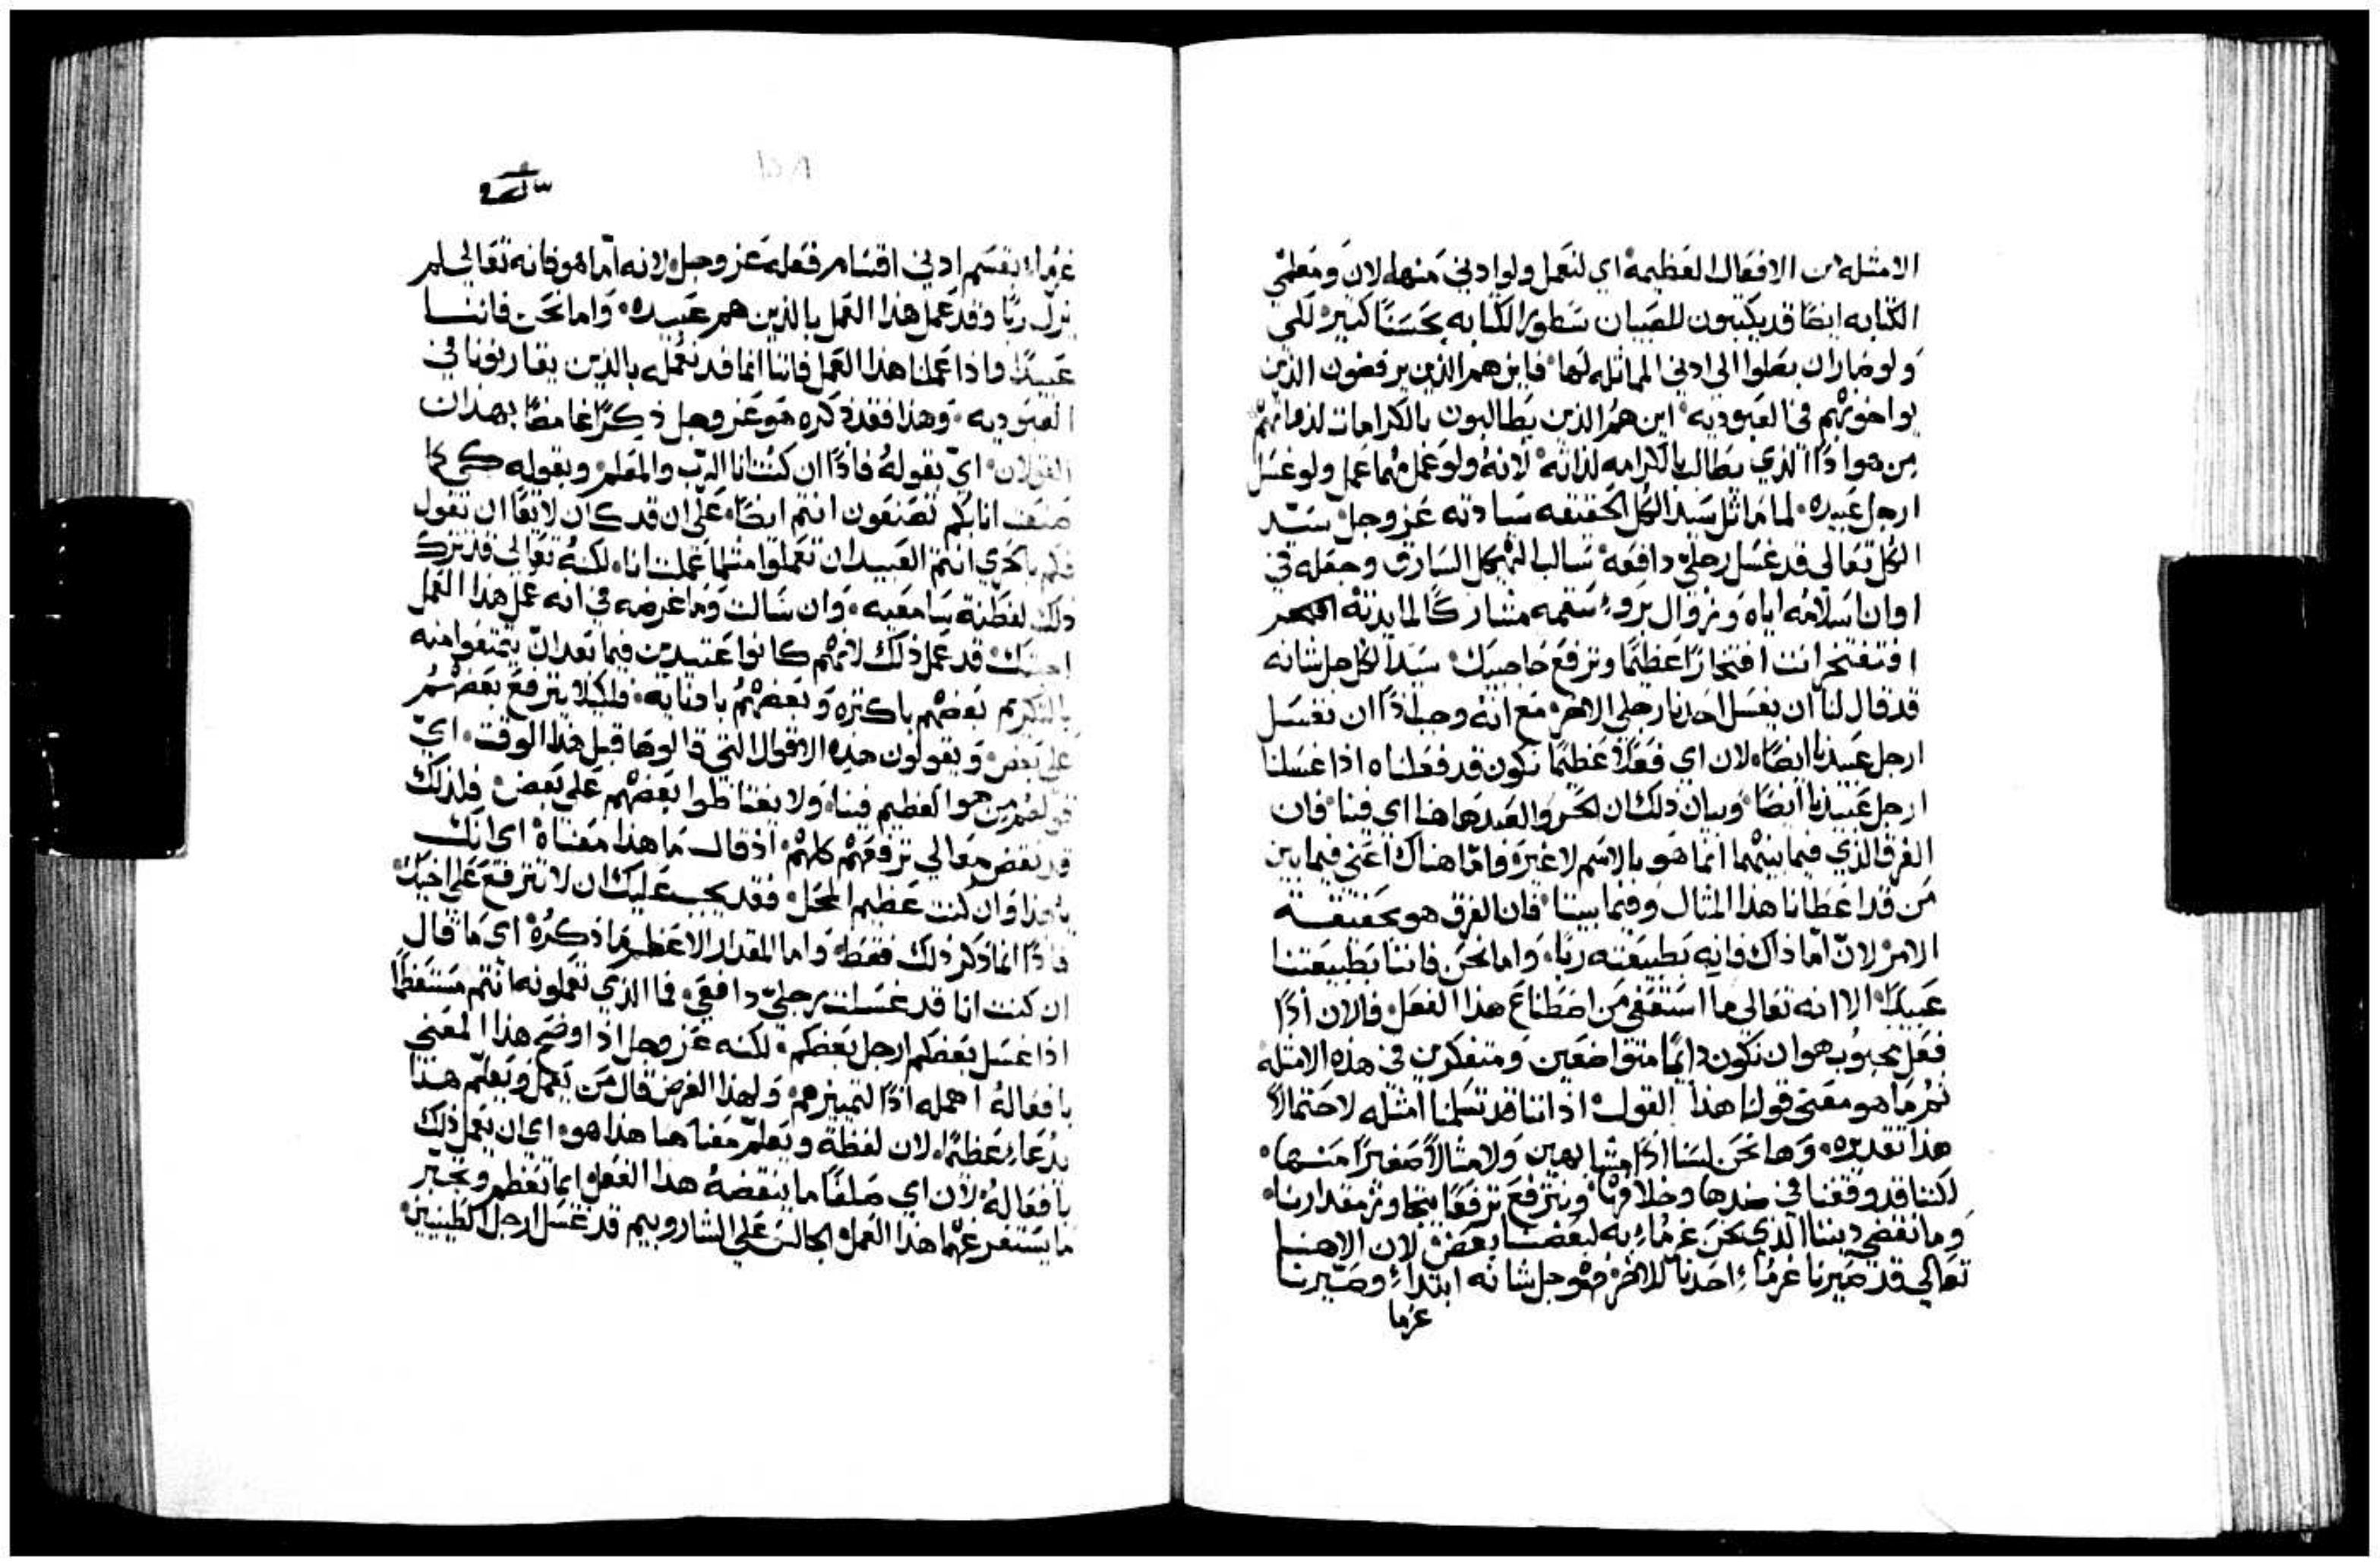 الامثله من الافعال العظيمه اي لنعمل ولو ادني منها لان ومعلمي
الكتابه ايضًا قد يكتبون للصبيان سطور الكتابه بحسنًا كبير لكي
ولو صاران يصلوا الي ادني المماثله لها فاين هم الذين يرفضون الذين
يواخونهم في العبوديه اين هم الذين يطالبون بالكرامات لذواتهم
من هوا ذًا الذي يطالب بالكرامه لذاته لانه ولو عمل مهما عمل ولو غسل
ارجل عبيده لما ماثل سيد الكل الحقيقه سيادته عز وجل سيد
الكل تعالي قد غسل رجلي دافعه سالب الهيكل السارق وجعله في
اوان اسلامه اياه وزوال بروء سقمه مشاركًا لمايدته
افتفتخر انت افتخارًا عظيمًا وترفع حاجبيك سيد الكل جل شانه
قد قال لنا ان يغسل احدنا رجلي الاخر مع انه وجب اذًا ان نغسل
ارجل عبيدنا ايضًا لان اي فعلًا عظيمًا نكون قد فعلناه اذا غسلنا
ارجل عبيدنا ايضًا وبيان ذلك ان الحر والعبد هاهنا اي فينا فان
الفرق الذي فيما بينهما انما هو بالاسم لا غيره فاما هناك اعني فيما بين
من قد اعطانا هذا المثال وفيما بيننا فان الفرق هو بحقيقة
الامر لان اما ذاك فانه بطبيعته ربًا واما نحن فاننا بطبيعتنا
عبيدًا الا انه تعالي ما استعفي من اصطناع هذا الفعل فالان اذًا
فعل محبوب هو ان نكون دايمًا متواضعين ومتفكرين في هذه الامثله
ثم ما هو معني قولنا هذا القول اذ اننا قد تسلمنا امثله لاحتمالًا
هذا تقديره وها نحن لسنا اذًا مشابهين ولا مثالًا صغيرًا منها
لكننا قد وقفنا في ضدها وخلافها ونترفع ترفعًا يتجاوز مقدارنا
وما نقضي ديننا الذي نحن غرماء به لبعضنا بعض لان الاهنا
تعالي قد صيرنا غرماء احدنا للاخر فهو جل شانه ابتداء وصيرنا
غرما
غرماء بقسم ادني اقسام فعله عز وجل لانه اما هو فانه تعالي لم
يزل ربًا وقد عمل هذا العمل بالذين هم عبيده واما نحن فاننا
عبيدًا واذا عملنا هذا العمل فاننا انما قد نعمله بالذين يقاربونا في
العبوديه وهذا فقد ذكره هو عز وجل ذكرًا غامضًا بهذان
القولان اي بقوله فاذًا ان كنت انا الرب والمعلم وبقوله كي كما
صنعت انا بكم تصنعون انتم ايضًا علي ان قد كان لايقًا ان نقول
فكم بالحري انتم العبيد ان تعملوا مثلما عملت انا لكنه تعالي قد ترك
ذلك لفطنة سامعيه وان سالت وما غرضه في انه عمل هذا العمل
اجبتك قد عمل ذلك لانهم كانوا عتيدين فيما بعد ان يتمتعوا منه
بالتكريم بعضهم باكثره وبعضهم بادنايه فلكيلا يترفع بعضهم
علي بعض ويقولون هذه الاقوال التي قالوها قبل هذا الوقت اي
قولهم من هوا لعظيم فينا ولا يغتاظوا بعضهم علي بعض فلذلك
قد نقض معالي ترفعهم كلهم اذ قال ما هذا معناه اي انك
يا هذا وان كنت عظيم المحل فقد يجب عليك ان لا تترفع علي اخيك
فاذًا انما ذكر ذلك فقط واما المقدار الاعظم ما ذكره اي ما قال
ان كنت انا قد غسلت رجلي دافعي فما الذي تعملونه انتم مستعظمًا
اذا غسل بعضكم ارجل بعضكم لكنه عز وجل اذ اوضح هذا المعني
بافعاله اهمله اذًا لتمييزهم ولهذا الغرض قال من يعمل ويعلم هذا
يدعا عظيمًا لان لفظة ويعلم معناها هذا هو اي ان يعمل ذلك
بافعاله لان اي صلفًا ما ينقضه هذا الفعل ايما تعظم وتجبر
ما يستفرغهما هذا العمل الجالس علي الشاروبيم قد غسل ارجل